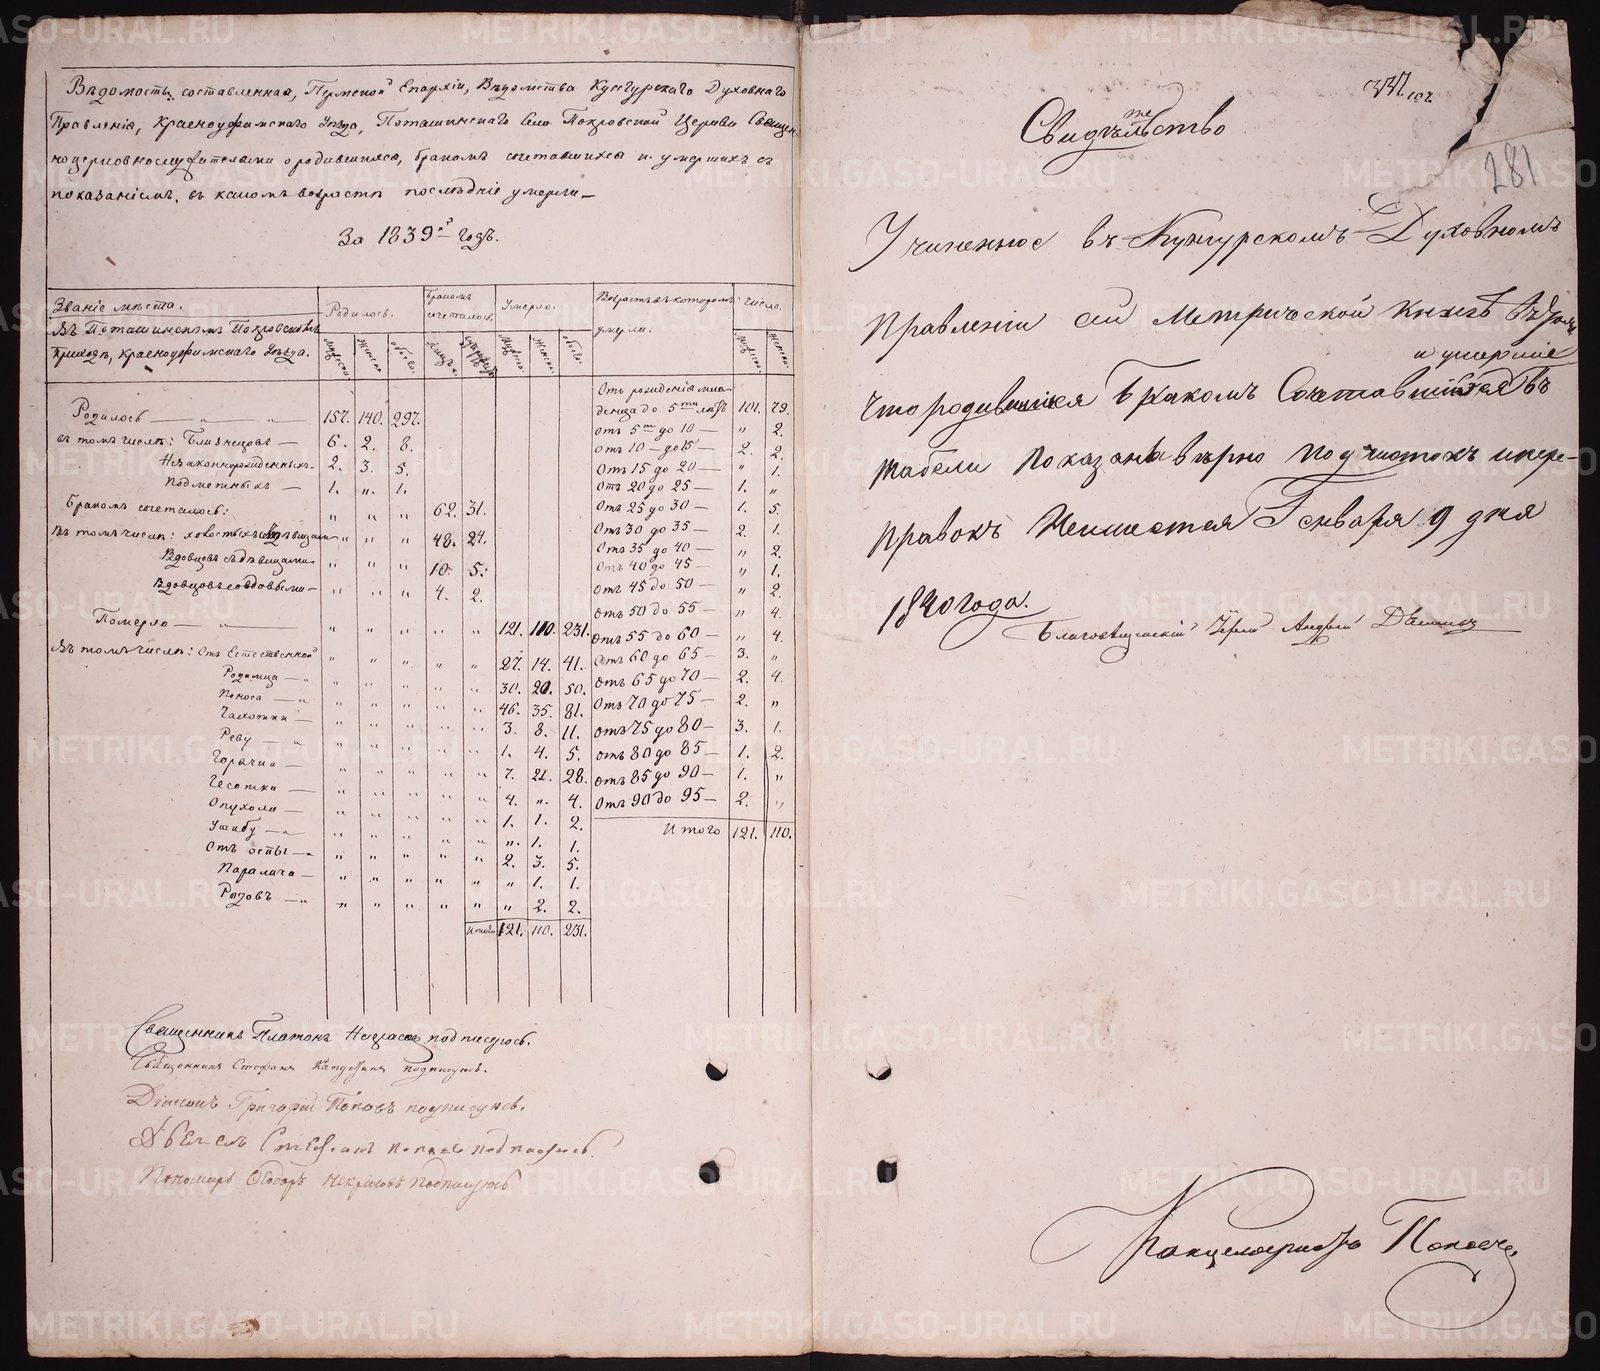 Вѣдомость составленная, Пермской Епархіи, Вѣдомства Кунгурскаго Духовнаго
Правленія, Красноуфимскаго Уѣзда, Поташинскаго Села Покровской Церкви Священ-
ноцерковнослужителями о родившихся, бракомъ сочетавшихся и умершихъ съ
показаніемъ, въ какомъ возрастѣ послѣдніе умерли
За 1839й годъ.
Званіе мѣста. Родилось. Бракомъ сочеталось. Умерло. Возрастъ въ которомъ умерли. Число.
Въ Поташинскомъ Покровскомъ
приходѣ, Красноуфимскаго Уѣзда. Мужеска. Женска. Обоего. Лицъ. Мужеска. Женска. Обоего. Мужеска. Женска.
Родилось — 157. 140. 297.
въ томъ числѣ: Близнецовъ — 6. 2. 8.
Незаконнорожденныхъ 2. 3. 5.
Подметныхъ — 1. „ 1.
Бракомъ сочеталось: „ „ „ 62. 31.
Въ томъ числѣ: холостыхъ съ дѣвицами „ „ „ 48. 24.
Вдовцовъ съ дѣвицами „ „ „ 10. 5.
Вдовцовъ со вдовыми „ „ „ 4. 2.
Померло — „ „ „ „ „ 121. 110. 231.
Въ томъ числѣ: Отъ Естественной „ „ „ „ „ 27. 14. 41.
Родимца — „ „ „ „ „ 30. 20. 50.
Поноса — „ „ „ „ „ 46. 35. 81.
Чахотки — „ „ „ „ „ 3. 8. 11.
Реву — „ „ „ „ „ 1. 4. 5.
Горячки — „ „ „ „ „ 7. 21. 28.
Чесотки — „ „ „ „ „ 4. „ 4.
Опухоли — „ „ „ „ „ 1. 1. 2.
Ушибу — „ „ „ „ „ „ 1. 1.
Отъ оспы — „ „ „ „ „ 2. 3. 5.
Паралича — „ „ „ „ „ „ 1. 1.
Родовъ — „ „ „ „ „ „ 2. 2.
Итого 121. 110. 231.
Отъ рожденія мла-
денца до 5ти лѣтъ 101. 79.
отъ 5ти до 10 — „ 2.
отъ 10 — до 15 — 2. 2.
Отъ 15 до 20 — „ 1.
Отъ 20 до 25 — 1. „
Отъ 25 до 30 — 1. 5.
Отъ 30 до 35 — 2. 1.
Отъ 35 до 40 — „ 2.
Отъ 40 до 45 — „ 1.
отъ 45 до 50 — „ 2.
отъ 50 до 55 — „ 4.
отъ 55 до 60 — „ 4.
Отъ 60 до 65 — 3. „
отъ 65 до 70 — 2. 4.
Отъ 70 до 75 — 2. „
отъ 75 до 80 — 3. 1.
отъ 80 до 85 — 1. 2.
отъ 85 до 90 — 1. „
Отъ 90 до 95 — 2. „
Итого 121. 110.
Священникъ Платонъ подписуюсь.
Священникъ Стефанъ подписуюсь.
Діаконъ Григорій Поповъ подписуюсь.
Дьячекъ Стефанъ Поповъ подписуюсь.
Пономарь Ѳеодоръ Некрасовъ Подписуюсь
281
Свидѣтельство
Учиненное въ Кунгурскомъ Духовномъ
Правленіи сей Метрической Книгѣ въ томъ
и умершіе
что родившіеся Бракомъ Сочетавшіеся въ
табели показаны вѣрно подчистокъ и пере-
правокъ Неимеется Генваря 9 дня
1840 года.
Благовѣщенскій Іерей Андрей
Канцеляристъ Поповъ
METRIKI.GASO-URAL.RU